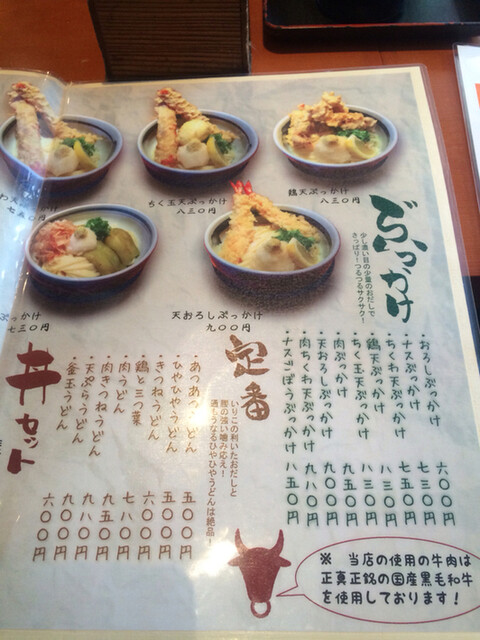 ちく玉天ぶっかけ
八三〇円
鶏天ぶっかけ
八三〇円
七五〇円
ぶっかけ
七三〇円
天おろしぶっかけ
九〇〇円
ぶっかけ
少し濃い目の少量のおだしで
さっぱり！つるつるサクサク！
・おろしぶっかけ 六〇〇円
・ナスぶっかけ 七三〇円
・ちくわ天ぶっかけ 七五〇円
・ちく玉天ぶっかけ 八三〇円
・鶏天ぶっかけ 八三〇円
・肉ぶっかけ 九五〇円
・天おろしぶっかけ 九〇〇円
・肉ちく天ぶっかけ 九八〇円
・ナスごぼうぶっかけ 八五〇円
定番
いりこの利いたおだしと
腰の強い噛み応え！
通もうなるひやひやうどんは絶品！
・あつあつうどん 五〇〇円
・ひやひやうどん 五〇〇円
・きつねうどん 六〇〇円
・鶏と三つ葉 七五〇円
・肉うどん 七八〇円
・肉きつねうどん 九八〇円
・天ぷらうどん 九〇〇円
・釜玉うどん 六〇〇円
丼セット
※ 当店の使用の牛肉は
正真正銘の国産黒毛和牛
を使用しております！